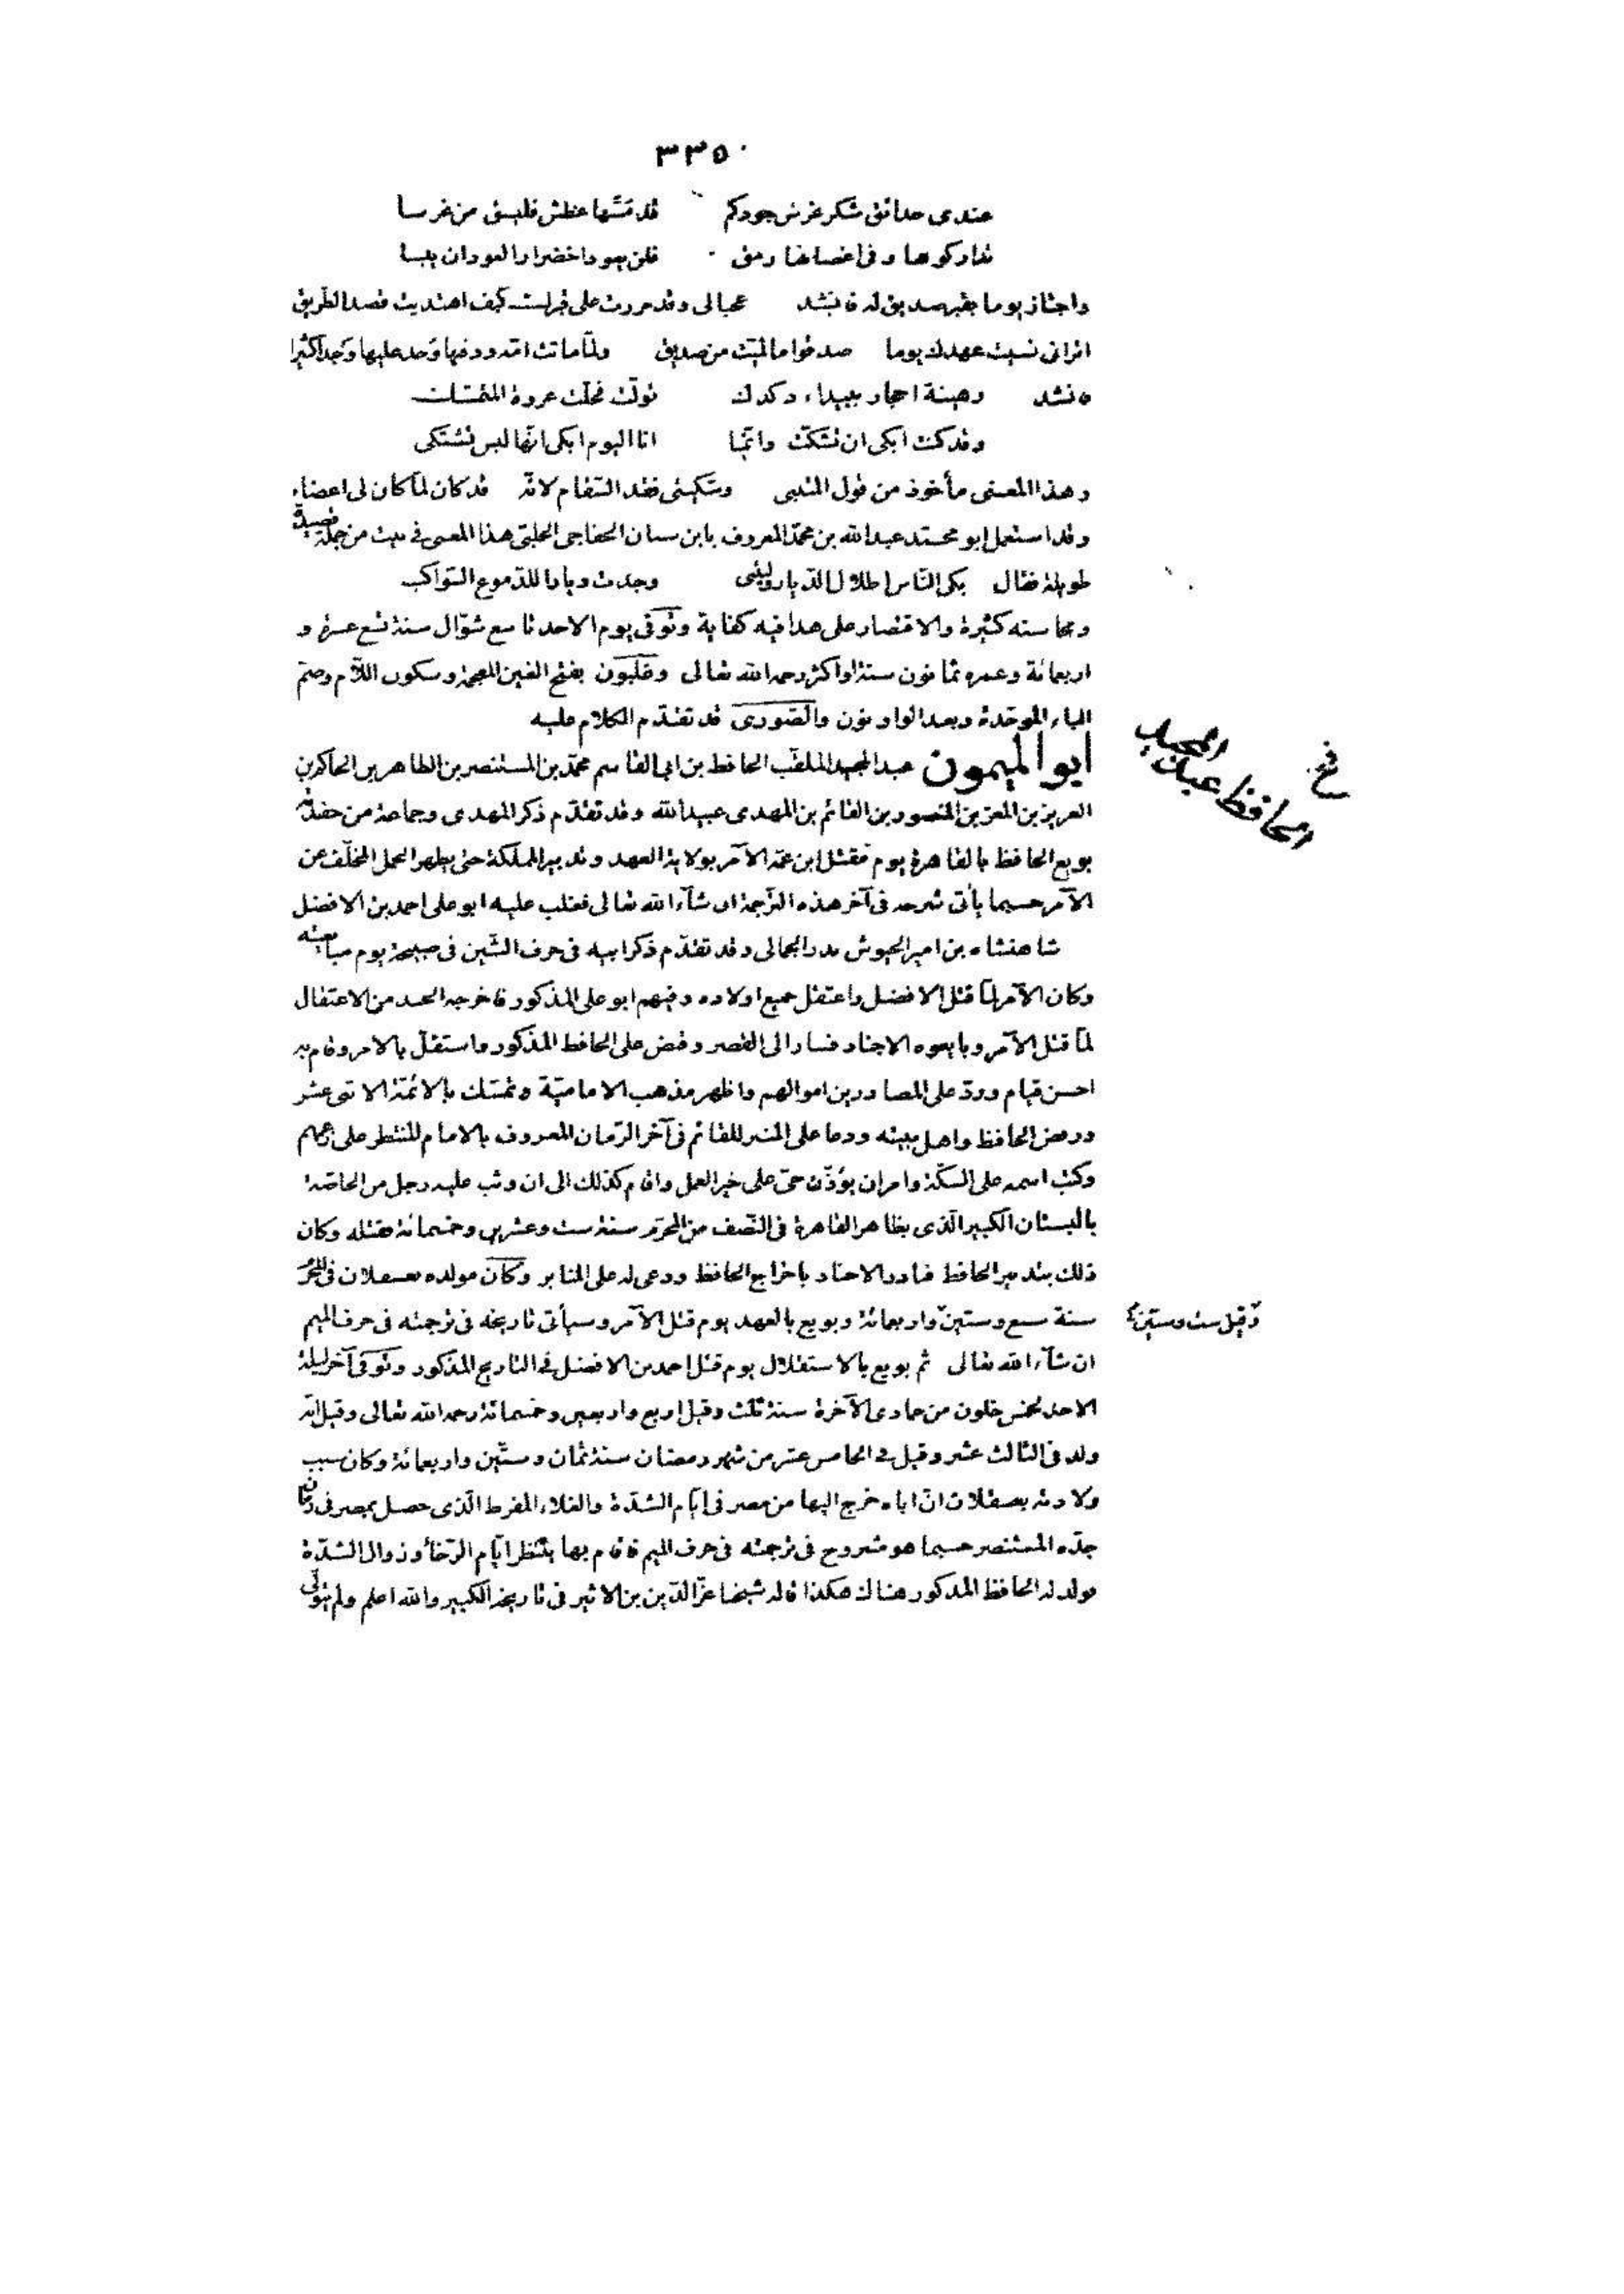 ٣٣٥٠
عندى حدائق شكر غرس جودكم قد مسّها عطش فليسق من غرسا
تداركوها وفى اغصانها رمق فلن يعود اخضرار العود ان يبسا
واجتاز يوما بقبر صديق له فانشد عجبا لى وقد مررت على قبرك كيف اهتديت قصد الطّريق
اترانى نسيت عهدك يوما صدقوا ما لميّت من صديق ولمّا ماتت امّه ودفنها وَجد عليها وَجداً كثيرا
فانشد رهينة احجار ببيداء دكدك تولّت فحلّت عروة المتمسّك
وقد كنت ابكى ان تشكّت وانّما انا اليوم ابكى انّها ليس تشتكى
وهذا المعنى مأخوذ من قول المتنبى وشكيتى فقد السّقام لانّه قد كان لمّا كان لى اعضاء
وقد استعمل ابو محمّد عبد الله بن محمّد المعروف بابن سنان الخفاجى الحلبىّ هذا المعنى فى بيت من جملة قصيدة
طويلة فقال بكى النّاس اطلال الدّيار وليتنى وجدت ديارا للدّموع السّواكب
ومحاسنه كثيرة والاقتصار على هذا فيه كفاية وتوفّى يوم الاحد تاسع شوّال سنة تسع عشرة و
اربعمائة وعمره ثمانون سنة او اكثر رحمه الله تعالى وغلبون بفتح الغين المعجمة وسكون اللّام وضمّ
الباء الموحّدة وبعد الواو نون والصّورى قد تقدّم الكلام عليه
ابو الميمون عبد المجيد الملقّب الحافظ بن ابى القاسم محمّد بن المستنصر بن الظاهر بن الحاكم بن
العزيز بن المعز بن المنصور بن القائم بن المهدى عبيد الله وقد تقدّم ذكر المهدى وجماعة من حفدته
بويع الحافظ بالقاهرة يوم مقتل ابن عمّه الآمر بولاية العهد وتدبير المملكة حتى يظهر الحمل المخلّف عن
الآمر حسبما يأتى شرحه فى آخر هذه التّرجمة ان شآء الله تعالى فغلب عليه ابو على احمد بن الافضل
شاهنشاه بن امير الجيوش بدر الجمالى وقد تقدّم ذكر ابيه فى حرف الشّين فى صبيحة يوم مبايعته
وكان الآمر لمّا قتل الافضل واعتقل جميع اولاده وفيهم ابو على المذكور فاخرجه الجند من الاعتقال
لمّا قتل الآمر وبايعوه الاجناد فسار الى القصر وقبض على الحافظ المذكور واستقلّ بالامر وقام به
احسن قيام وردّ على المصادرين اموالهم واظهر مذهب الاماميّة وتمسّك بالائمّة الاثنى عشر
ورفض الحافظ واهل بيته ودعا على المنبر للقائم فى آخر الزّمان المعروف بالامام المنتظر على زعمهم
وكتب اسمه على السكّة وامر ان يؤذّن حىّ على خير العمل واقام كذلك الى ان وثب عليه رجل من الخاصّة
بالبستان الكبير الّذى بظاهر القاهرة فى النّصف من المحرّم سنة ست وعشرين وخمسمائة فقتله وكان
ذلك بتدبير الحافظ فبادر الاجناد باخراج الحافظ ودعى له على المنابر وكان مولده بعسقلان فى المحرّم
سنة سبع وستّين واربعمائة وبويع بالعهد يوم قتل الآمر وسيأتى تاريخه فى ترجمته فى حرف الميم
ان شآء الله تعالى ثم بويع بالاستقلال يوم قتل احمد بن الافضل فى التاريخ المذكور وتوفى آخر ليلة
الاحد لخمس خلون من جمادى الآخرة سنة ثلث وقيل اربع واربعين وخمسمائة رحمه الله تعالى وقيل انّه
ولد فى الثالث عشر وقيل فى الخامس عشر من شهر رمضان سنة ثمان وستّين واربعمائة وكان سبب
ولادته بعسقلان انّ اباه خرج اليها من مصر فى ايّام الشدّة والغلاء المفرط الّذى حصل بمصر فى زمان
جدّه المستنصر حسبما هو مشروح فى ترجمته فى حرف الميم فاقام بها ينتظر ايّام الرّخاء وزوال الشدّة
فولد له الحافظ المذكور هناك هكذا قاله شيخنا عزّ الدّين بن الاثير فى تاريخه الكبير والله اعلم ولم يتولّى
فخ
الحافظ عبد المجيد
وقيل ست وستين